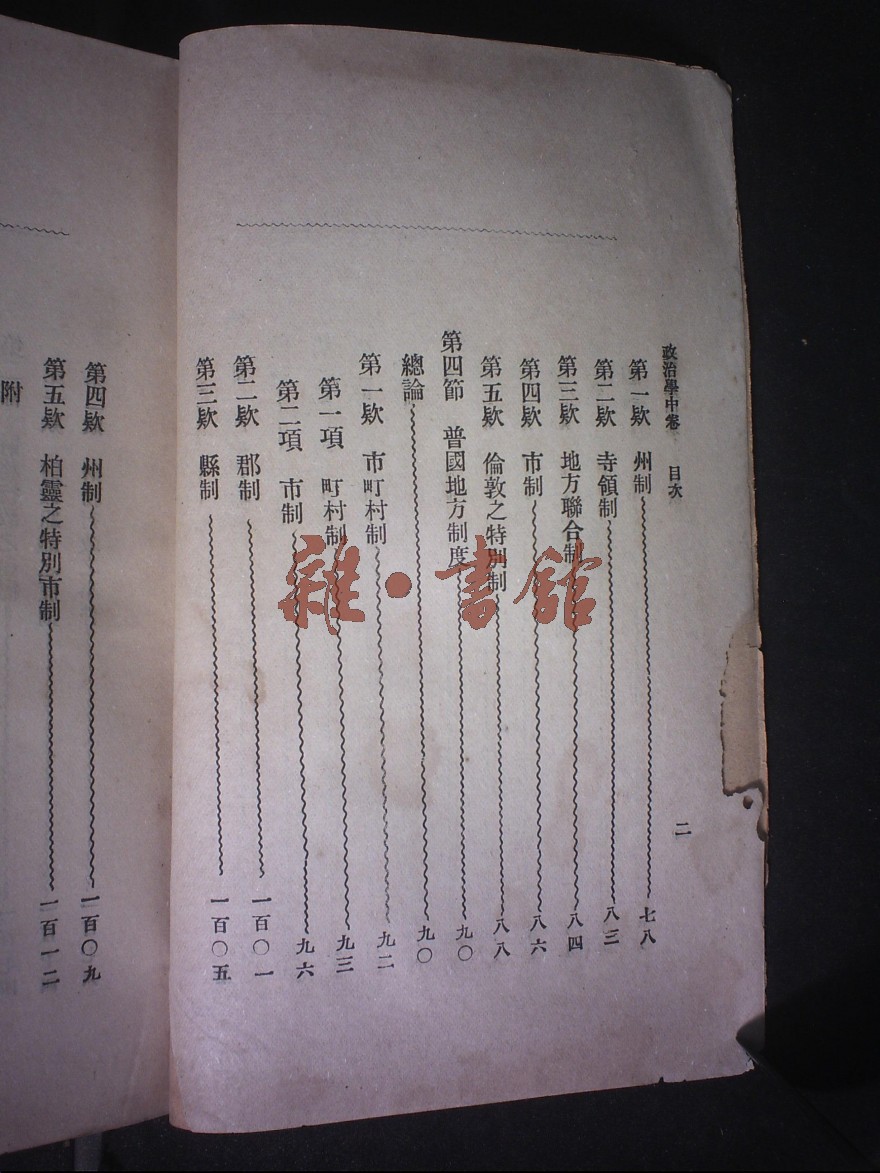 政治學中卷 目次 二
第一欵 州制 七八
第二欵 寺領制 八三
第三欵 地方聯合制 八四
第四欵 市制 八六
第五欵 倫敦之特別制 八八
第四節 普國地方制度 九〇
總論 九〇
第一欵 市町村制 九二
第一項 町村制 九三
第二項 市制 九六
第二欵 郡制 一百〇一
第三欵 縣制 一百〇五
第四欵 州制 一百〇九
第五欵 柏靈之特別市制 一百一二
附
雜·書館